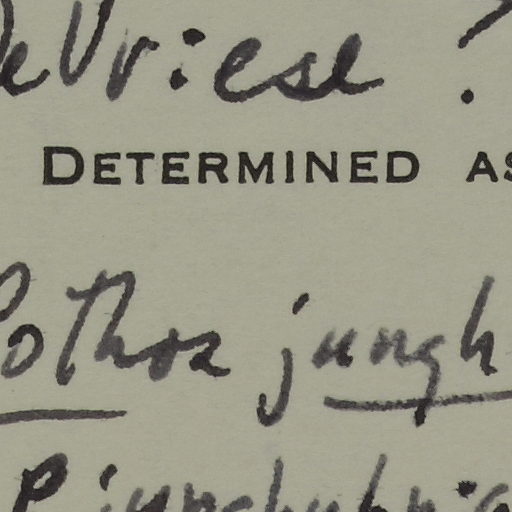 De Vriese ?
DETERMINED AS
Pothos jungh
P. junghuhnia